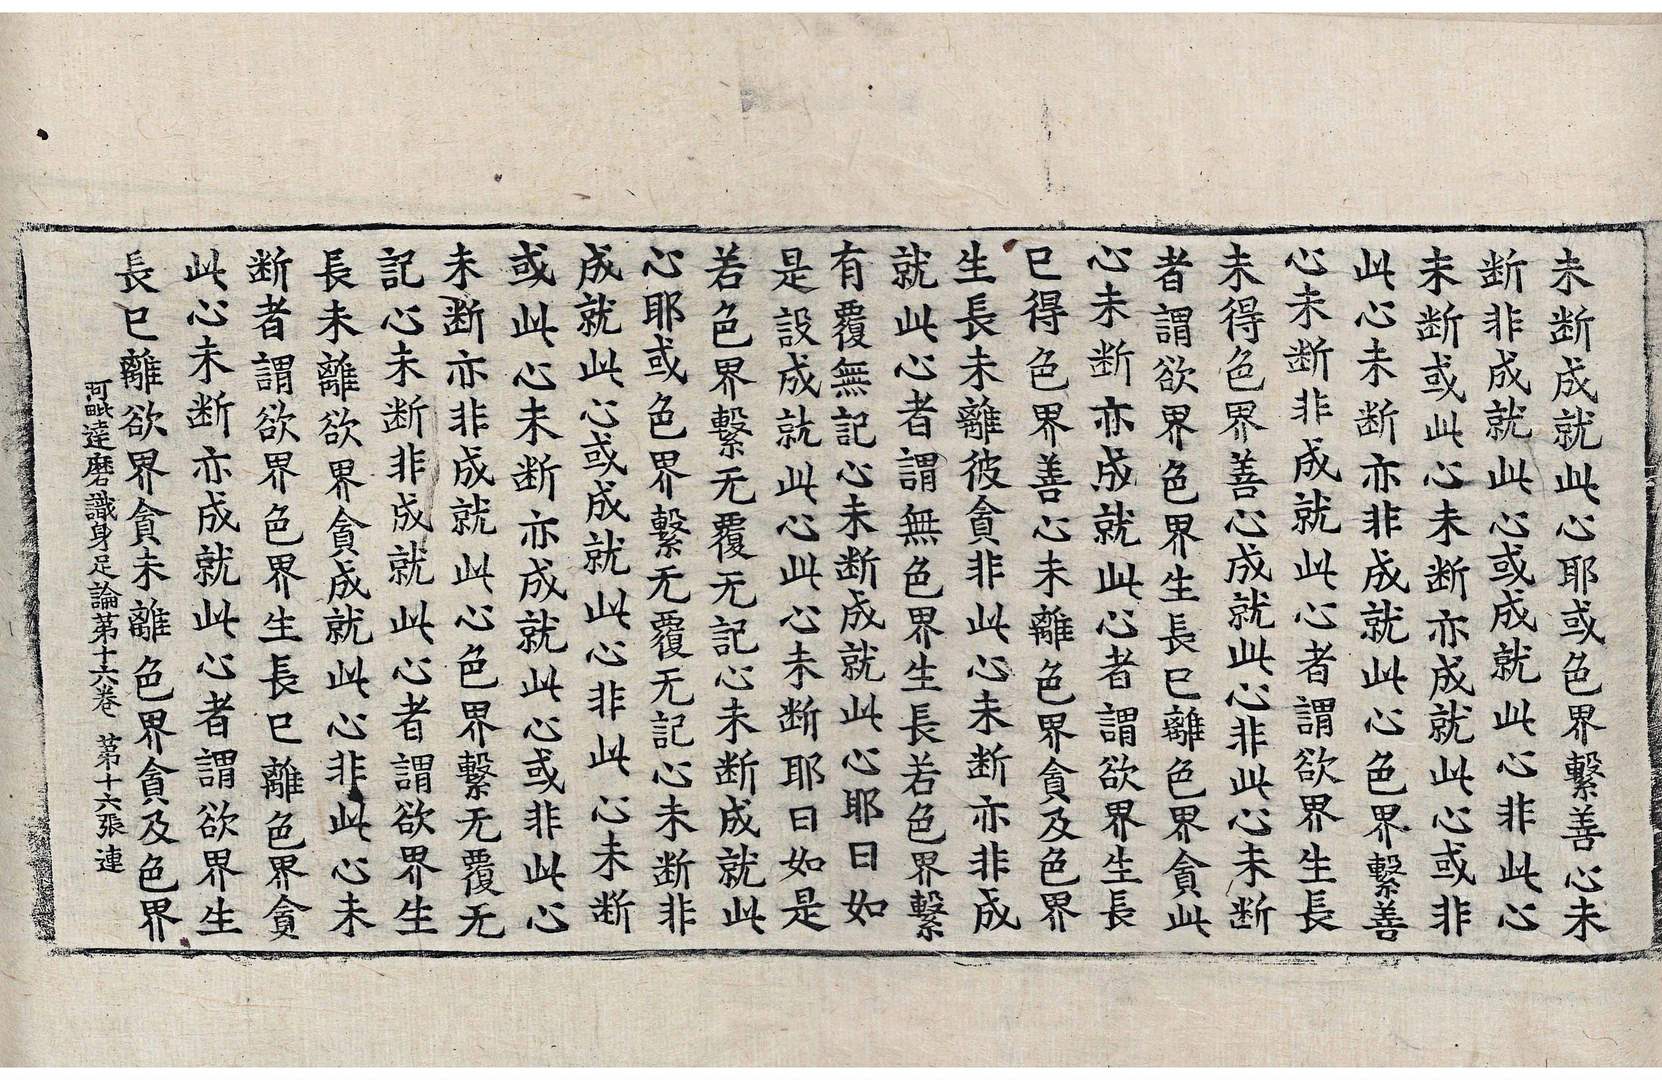 未断成就此心耶或色界繫善心未
断非成就此心或成就此心非此心
未断或此心未断亦成就此心或非
此心未断亦非成就此心色界繫善
心未断非成就此心者謂欲界生長
未得色界善心成就此心非此心未断
者謂欲界色界生長已離色界貪此
心未断亦成就此心者謂欲界生長
已得色界善心未離色界貪及色界
生長未離彼貪非此心未断亦非成
就此心者謂無色界生長若色界繫
有覆無記心未断成就此心耶曰如
是設成就此心此心未断耶曰如是
若色界繫无覆无記心未断成就此
心耶或色界繫无覆无記心未断非
成就此心或成就此心非此心未断
或此心未断亦成就此心或非此心
未断亦非成就此心色界繫无覆无
記心未断非成就此心者謂欲界生
長未離欲界貪成就此心非此心未
断者謂欲界色界生長已離色界貪
此心未断亦成就此心者謂欲界生
長已離欲界貪未離色界貪及色界
阿毗達磨識身足論第十六卷 第十六張 連